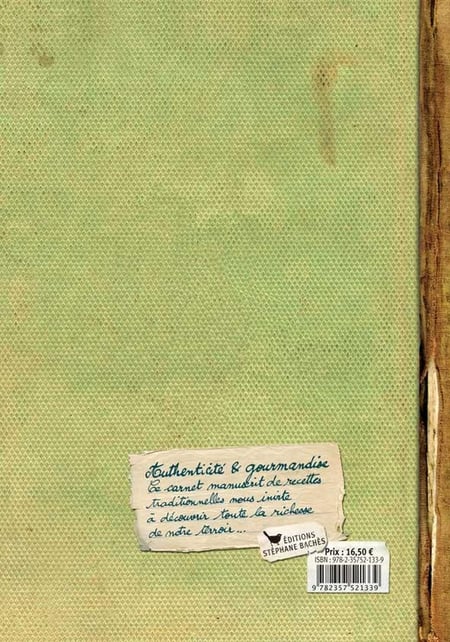 Authenticité & gourmandise
Ce carnet manuscrit de recettes
traditionnelles nous invite
à découvrir toute la richesse
de notre terroir...
ÉDITIONS
STÉPHANE BACHÈS
Prix : 16,50 €
ISBN : 978-2-35752-133-9
9 782357 521339